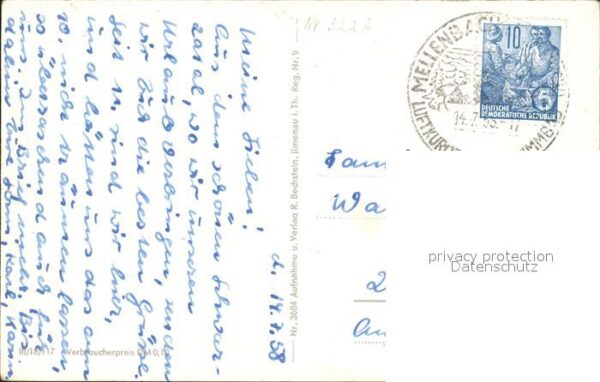 d. 14.7.58
Meine Lieben!
Aus dem schönen Schwarzatal, wo wir unseren
Urlaub verbringen, senden
wir Euch die besten Grüße.
Seit 12. sind wir hier,
und hätten uns das am
10. nicht träumen lassen,
so überraschend auch für
uns. Im Brief mehr. Bis
dahin
Nr. 3684 Aufnahme u. Verlag R. Bechstein, Ilmenau i. Th. Reg. Nr. 9
III/18/117 Verbraucherpreis DM 0,
Nr 322 A
MELLENBACH
LUFTKURORT
14.7.58
10
5
DEUTSCHE
DEMOKRATISCHE REPUBLIK
Fam
Wa
privacy protection
Datenschutz